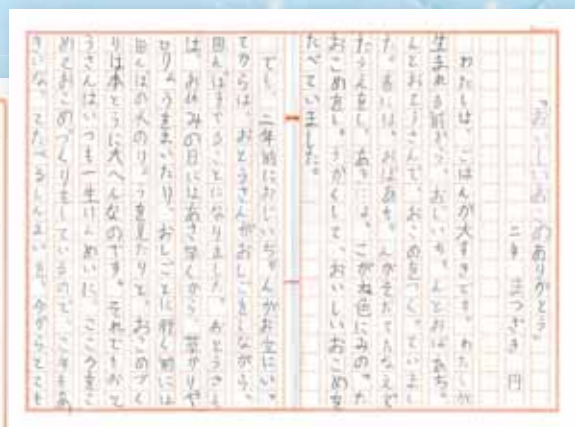 「おいしいおこめありがとう」
二年 まつざき 円
わたしは、ごはんが大すきです。わたしが
生まれる前から、おじいちゃんとおばあち
んとおとうさんで、おこめをつくっていまし
た。春には、おばあちゃんがそだてたなえで
たうえをし、あきには、こがね色にみのった
おこめをしゅうかくして、おいしいおこめを
たべていました。
でも、二年前におじいちゃんがお空にいっ
てからは、おとうさんがおしごとをしながら、
田んぼをすることになりました。おとうさん
は、お休みの日にはあさ早くから、草かりや
ひりょうをまいたり、おしごとに行く前には
田んぼの水のりょうを見たりと、おこめづく
りは本とうに大へんなのです。それでもおと
うさんはいつも一生けんめいに、こころをこ
めておこめづくりをしているので、